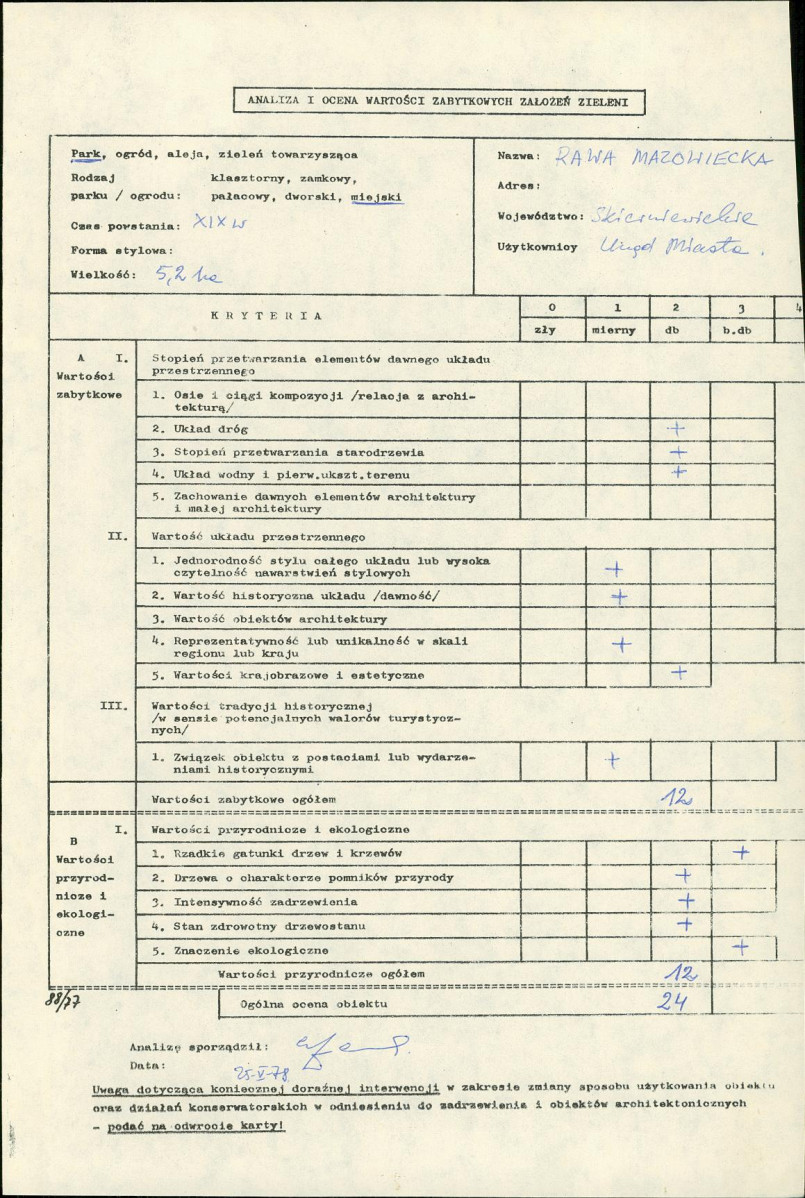 ANALIZA I OCENA WARTOŚCI ZABYTKOWYCH ZAŁOŻEŃ ZIELENI
Park, ogród, aleja, zieleń towarzysząca
Rodzaj klasztorny, zamkowy,
parku / ogrodu: pałacowy, dworski, miejski
Czas powstania: XIX w
Forma stylowa:
Wielkość: 5,2 ha
Nazwa: RAWA MAZOWIECKA
Adres:
Województwo: Skierniewickie
Użytkownicy Urząd Miasta.
KRYTERIA 0 1 2 3 4
zły mierny db b.db
A I. Stopień przetwarzania elementów dawnego układu
Wartości przestrzennego
zabytkowe 1. Osie i ciągi kompozycji /relacja z archi-
tekturą/
2. Układ dróg +
3. Stopień przetwarzania starodrzewia +
4. Układ wodny i pierw.ukszt.terenu +
5. Zachowanie dawnych elementów architektury
i małej architektury
II. Wartość układu przestrzennego
1. Jednorodność stylu całego układu lub wysoka
czytelność nawarstwień stylowych +
2. Wartość historyczna układu /dawność/ +
3. Wartość obiektów architektury
4. Reprezentatywność lub unikalność w skali
regionu lub kraju +
5. Wartości krajobrazowe i estetyczne +
III. Wartości tradycji historycznej
/w sensie potencjalnych walorów turystycz-
nych/
1. Związek obiektu z postaciami lub wydarze-
niami historycznymi +
Wartości zabytkowe ogółem 12
I. Wartości przyrodnicze i ekologiczne
B
Wartości 1. Rzadkie gatunki drzew i krzewów +
przyrod- 2. Drzewa o charakterze pomników przyrody +
nicze i 3. Intensywność zadrzewienia +
ekologi- 4. Stan zdrowotny drzewostanu +
czne 5. Znaczenie ekologiczne +
Wartości przyrodnicze ogółem 12
88/77 Ogólna ocena obiektu 24
Analizę sporządził:
Data: 25-V-78
Uwaga dotycząca koniecznej doraźnej interwencji w zakresie zmiany sposobu użytkowania obiektu
oraz działań konserwatorskich w odniesieniu do zadrzewienia i obiektów architektonicznych
- podać na odwrocie karty!